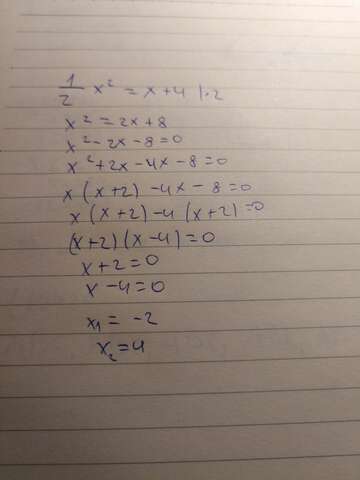 1/2 x² = x+4 |·2
x² = 2x+8
x² - 2x - 8=0
x²+2x - 4x - 8=0
x (x+2) - 4x - 8=0
x (x+2) - 4 (x+2)=0
(x+2) (x-4)=0
x+2=0
x-4=0
x₁ = -2
x₂=4